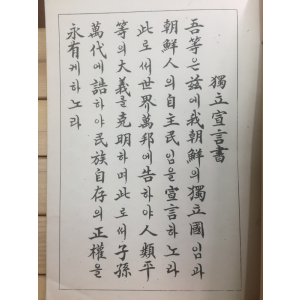 獨立宣言書
吾等은茲에我朝鮮의獨立國임과
朝鮮人의自主民임을宣言하노라
此로써世界萬邦에告하야人類平
等의大義를克明하며此로써子孫
萬代에誥하야民族自存의正權을
永有케하노라